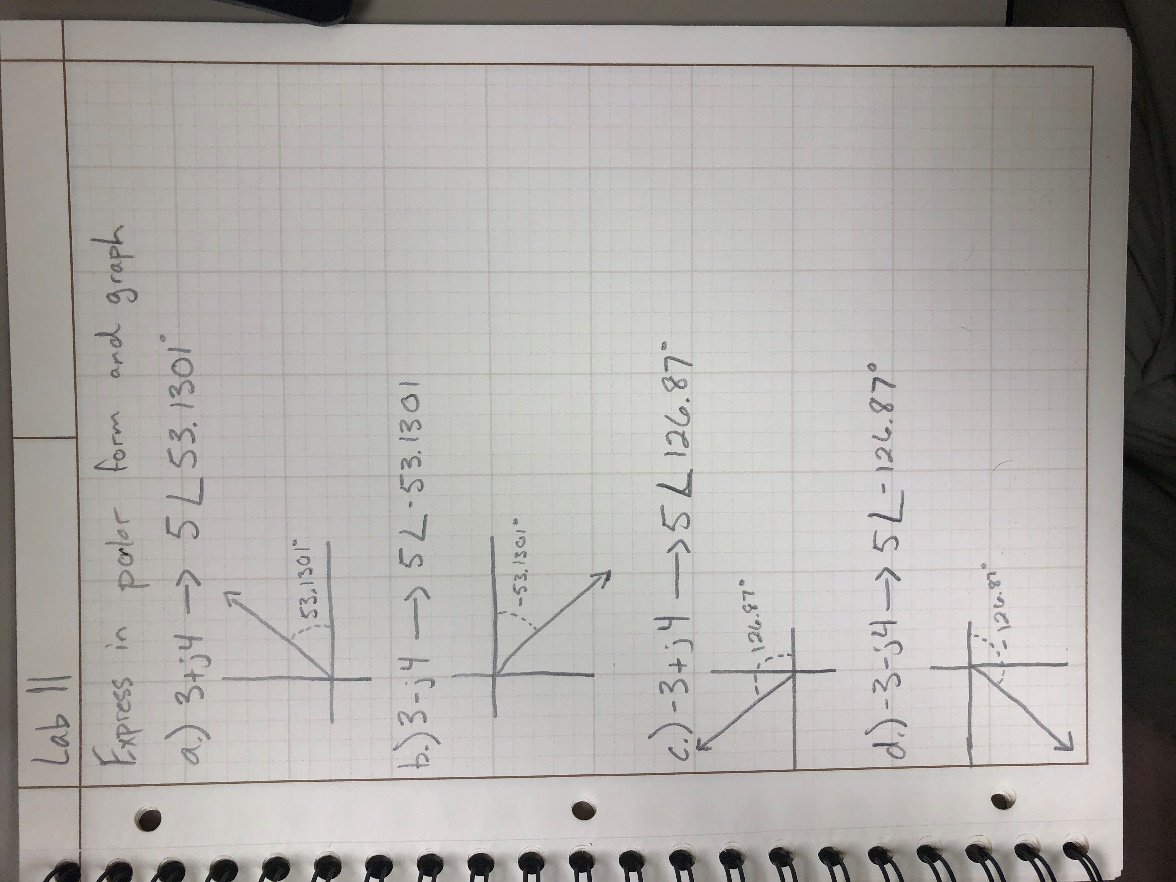 Lab 11
Express in polor form and graph
a.) 3+j4 → 5∠53.1301°
53.1301°
b.) 3-j4 → 5∠-53.1301
-53.1301°
c.) -3+j4 → 5∠126.87°
126.87°
d.) -3-j4 → 5∠-126.87°
-126.87°